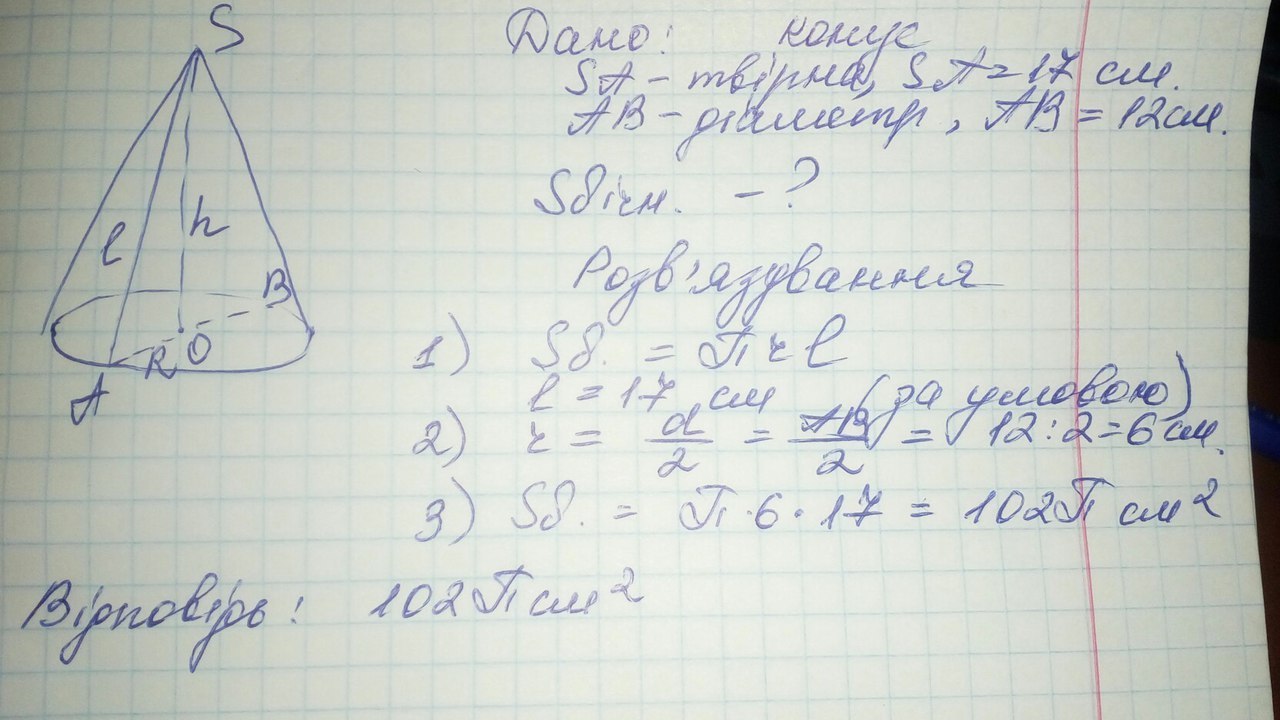 S
Дано: конус
SA - твірна, SA = 17 см.
AB - діаметр, AB = 12см.
Sбічн. - ?
l h
Розв'язування
B
R O
A
1) Sб. = П r l
l = 17 см (за умовою)
2) r = d/2 = AB/2 = 12:2=6см.
3) Sб. = П·6·17 = 102П см²
Відповідь: 102Псм²